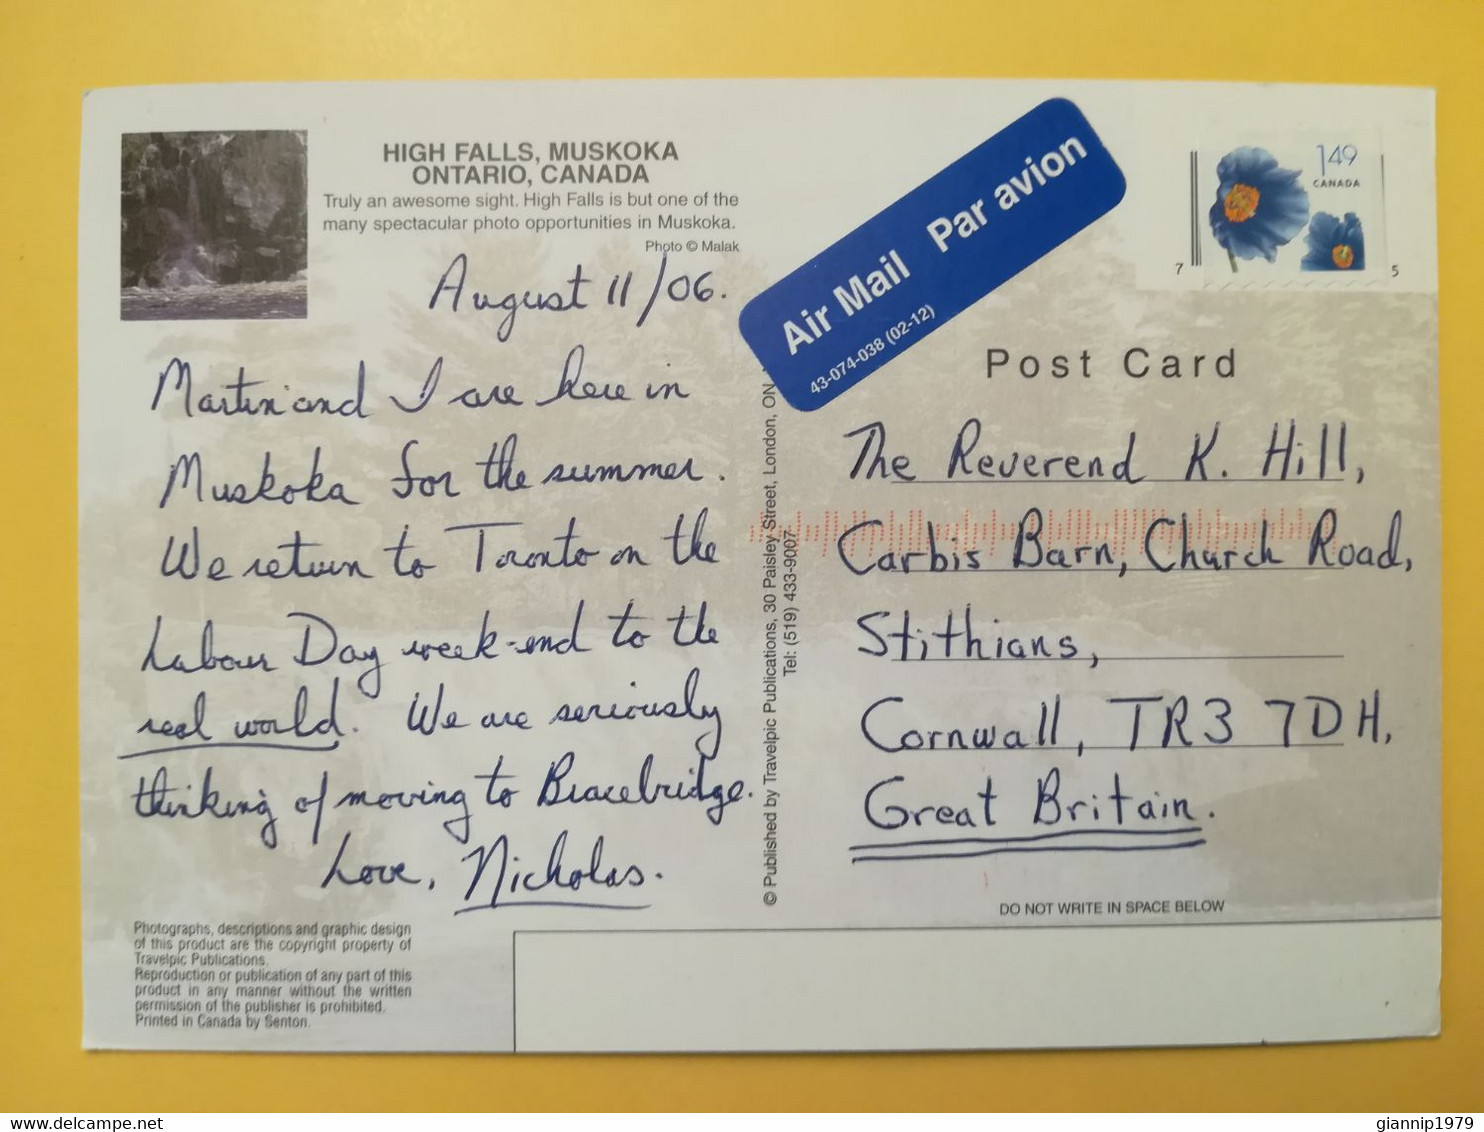 HIGH FALLS, MUSKOKA
ONTARIO, CANADA
Truly an awesome sight. High Falls is but one of the
many spectacular photo opportunities in Muskoka.
Photo © Malak
August 11/06.
Martin and I are here in
Muskoka for the summer.
We return to Toronto on the
Labour Day week-end to the
real world. We are seriously
thinking of moving to Bracebridge.
Love, Nicholas.
Photographs, descriptions and graphic design
of this product are the copyright property of
Travelpic Publications.
Reproduction or publication of any part of this
product in any manner without the written
permission of the publisher is prohibited.
Printed in Canada by Senton.
© Published by Travelpic Publications, 30 Paisley Street, London, ON
Tel: (519) 433-9007
Air Mail Par avion
43-074-038 (02-12)
149
CANADA
7 5
Post Card
The Reverend K. Hill,
Carbis Barn, Church Road,
Stithians,
Cornwall, TR3 7DH,
Great Britain.
DO NOT WRITE IN SPACE BELOW
giannip1979